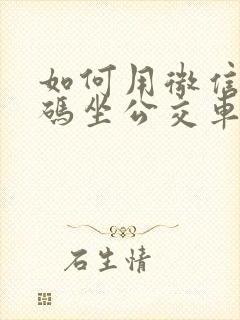 如何用微信
碼坐公交車
石生情